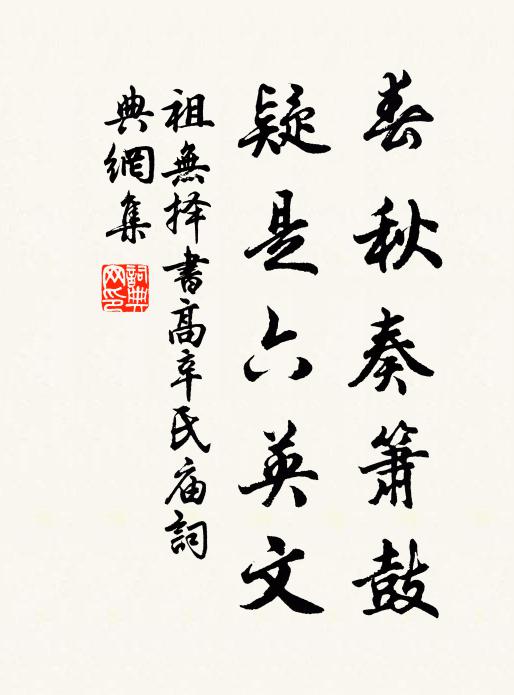 春秋奏簫鼓
疑是六英文
祖無择書高辛氏庙詞
典網集
詞典网印